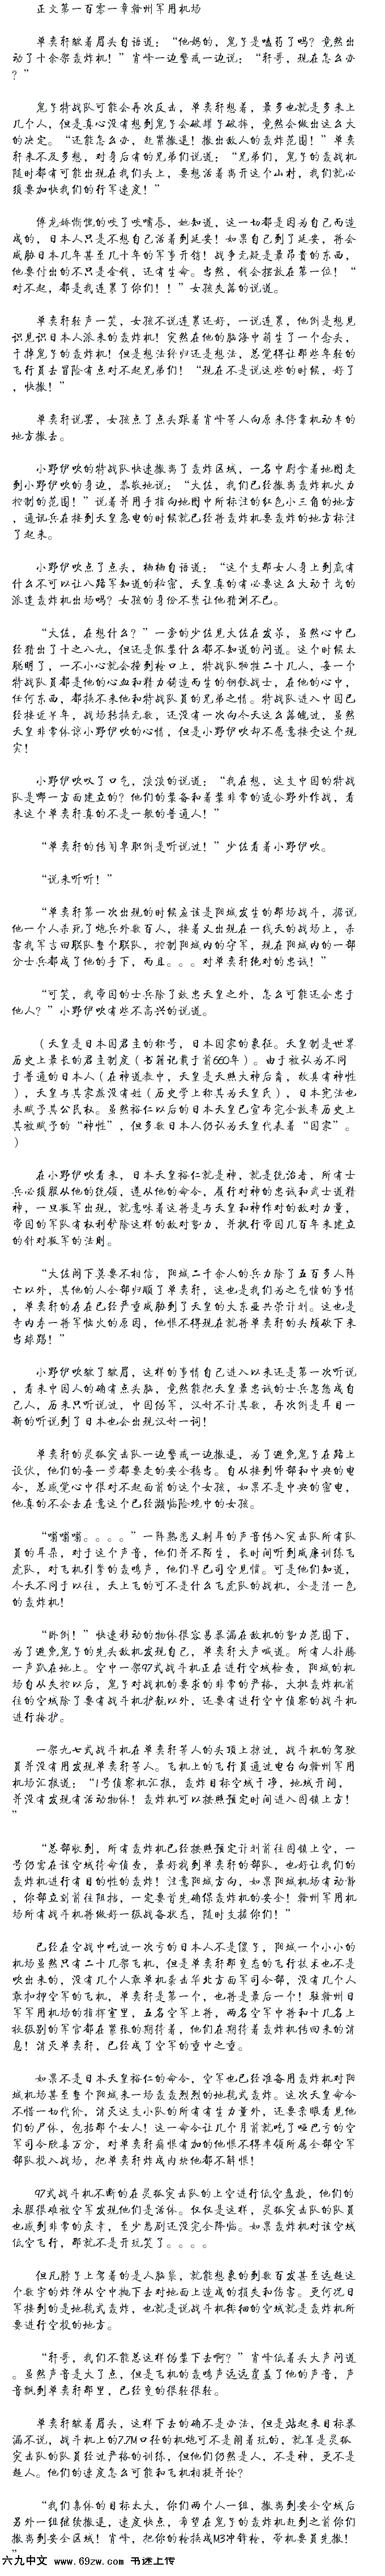 正文第一百零一章赣州军用机场
单奕轩皱着眉头自语道：“他妈的，鬼子是嗑药了吗？竟然出
动了十余架轰炸机！”肖峰一边警戒一边说：“轩哥，现在怎么办
？”
鬼子特战队可能会再次反击，单奕轩想着，最多也就是多来上
几个人，但是真心没有想到鬼子会破罐子破摔，竟然会做出这么大
的决定。“还能怎么办，赶紧撤退！撤出敌人的轰炸范围！”单奕
轩来不及多想，对身后有的兄弟们说道：“兄弟们，鬼子的轰战机
随时都有可能出现在我们头上，要想活着离开这个山村，我们就必
须要加快我们的行军速度！”
成的，日本人只是不想自己活着到延安！如果自己到了延安，将会
威胁日本几年甚至几十年的军事开销！战争无疑是最昂贵的东西，
他要付出的不只是金钱，还有生命。当然，钱会摆放在第一位！“
对不起，都是我连累了你们！！”女孩失落的说道。
单奕轩轻声一笑，女孩不说连累还好，一说连累，他倒是想见
识见识日本人派来的轰炸机！突然在他的脑海中萌生了一个念头，
干掉鬼子的轰炸机！但是想法终归还是想法，总觉得让那些年轻的
飞行员去冒险有点对不起兄弟们！“现在不是说这些的时候，好了
，快撤！”
单奕轩说罢，女孩点了点头跟着肖峰等人向原来停靠机动车的
地方撤去。
小野伊吹的特战队快速撤离了轰炸区域，一名中尉拿着地图走
到小野伊吹的身边，恭敬地说：“大佐，我们已经撤离轰炸机火力
控制的范围！”说着并用手指向地图中所标注的红色小三角的地方
，通讯兵在接到天皇急电的时候就已经将轰炸机要轰炸的地方标注
了起来。
小野伊吹点了点头，喃喃自语道：“这个支那女人身上到底有
什么不可以让八路军知道的秘密，天皇真的有必要这么大动干戈的
派遣轰炸机出场吗？女孩的身份不禁让他猜测不已。
“大佐，在想什么？”一旁的少佐见大佐在发呆，虽然心中已
经猜出了十之八九，但还是假装什么都不知道的问道。这个时候太
聪明了，一不小心就会撞到枪口上，特战队牺牲二十几人，每一个
特战队员都是他的心血和精力铸造而生的钢铁战士，在他的心中，
任何东西，都换不来他和特战队员的兄弟之情。特战队进入中国已
经接近半年，战场转换无数，还没有一次向今天这么落魄过，虽然
天皇非常体谅小野伊吹的心情，但是小野伊吹却不愿意接受这个现
实！
小野伊吹叹了口气，淡淡的说道：“我在想，这支中国的特战
队是哪一方面建立的？他们的装备和着装非常的适合野外作战，看
来这个单奕轩真的不是一般的普通人！”
“单奕轩的传闻卑职倒是听说过！”少佐看着小野伊吹。
“说来听听！”
“单奕轩第一次出现的时候应该是阳城发生的那场战斗，据说
他一个人杀死了炮兵外数百人，接着又出现在一线天的战场上，杀
害我军吉田联队整个联队，控制阳城内的守军，现在阳城内的一部
分士兵都成了他的手下，而且。。。对单奕轩绝对的忠诚！”
“可笑，我帝国的士兵除了效忠天皇之外，怎么可能还会忠于
他人？”小野伊吹有些不高兴的说道。
（天皇是日本国君主的称号，日本国家的象征。天皇制是世界
历史上最长的君主制度（书籍记载于前660年）。由于被认为不同
于普通的日本人（在神道教中，天皇是天照大神后裔，故具有神性
），天皇与其家族没有姓（历史学上称其为天皇氏），日本宪法也
未赋予其公民权。虽然裕仁以后的日本天皇已宣布完全放弃历史上
其被赋予的“神性”，但多数日本人仍认为天皇代表着“国家”。
）
在小野伊吹看来，日本天皇裕仁就是神，就是统治者，所有士
兵必须服从他的统领，遵从他的命令，履行对神的忠诚和武士道精
神，一旦叛军出现，就意味着这将是与天皇和神作对的敌对力量，
帝国的军队有权利铲除这样的敌对势力，并执行帝国几百年来建立
的针对叛军的法则。
“大佐阁下莫要不相信，阳城二千余人的兵力除了五百多人阵
亡以外，其他的人全部归顺了单奕轩，这也是我们为之气愤的事情
，单奕轩的存在已经严重威胁到了天皇的大东亚共荣计划。这也是
寺内寿一将军恼火的原因，他恨不得现在就将单奕轩的头颅砍下来
当球踢！”
小野伊吹皱了皱眉，这样的事情自己进入以来还是第一次听说
，看来中国人的确有点头脑，竟然能把天皇最忠诚的士兵忽悠成自
己人，历来只听说过，中国伪军，汉奸不计其数，再次倒是耳目一
新的听说到了日本也会出现汉奸一词！
单奕轩的灵狐突击队一边警戒一边撤退，为了避免鬼子在路上
设伏，他们的每一步都要走的安全稳当。自从接到师部和中央的电
令，总感觉心中很对不起面前的这个女孩，如果不是中央的密电，
他真的不会去在意这个已经濒临险境中的女孩。
“嗡嗡嗡。。。。”一阵熟悉又刺耳的声音传入突击队所有队
员的耳朵，对于这个声音，他们并不陌生，长时间听到威廉训练飞
虎队，对飞机引擎的轰鸣声，他们早已司空见惯。可是他们知道，
今天不同于以往，天上飞的可不是什么飞虎队的战机，全是清一色
的轰炸机！
“卧倒！”快速移动的物体很容易暴漏在敌机的势力范围下，
为了避免鬼子的先头敌机发现自己，单奕轩大声喊道。所有人扑腾
一声趴在地上。空中一架97式战斗机正在进行空域检查，阳城的机
场自从失控以后，鬼子对战机的要求的非常的严格，大批轰炸机前
往的空域除了要有战斗机护航以外，还要有进行空中侦察的战斗机
进行接护。
一架九七式战斗机在单奕轩等人的头顶上掠过，战斗机的驾驶
员并没有用发现单奕轩等人。飞机上的飞行员通过电台向赣州军用
机场汇报道：“1号侦察机汇报，轰炸目标空域干净，地域开阔，
并没有发现有活动物体！轰炸机可以按照预定时间进入固镇上方！
”
“总部收到，所有轰炸机已经按照预定计划前往固镇上空，一
号仍需在该空域待命侦查，最好找到单奕轩的部队，也好让我们的
轰炸机进行有目的性的轰炸！注意阳城方向，如果阳城机场有动静
，你部立刻前往阻挡，一定要首先确保轰炸机的安全！赣州军用机
场所有战斗机将做好一级战备状态，随时支援你们！”
已经在空战中吃过一次亏的日本人不是傻子，阳城一个小小的
机场虽然只有二十几架飞机，但是单奕轩那变态的飞行技术也不是
吹出来的，没有几个人敢单机袭击华北方面军司令部，没有几个人
敢扣押空军的飞机，单奕轩是第一个，也将是最后一个！驻赣州日
军军用机场的指挥室里，五名空军上将，两名空军中将和十几名上
校级别的军官都在紧张的期待着，他们在期待着轰炸机传回来的消
息！消灭单奕轩，已经成了空军的重中之重。
如果不是日本天皇裕仁的命令，空军也已经准备用轰炸机对阳
城机场甚至整个阳城来一场轰轰烈烈的地毯式轰炸。这次天皇命令
不惜一切代价，消灭这支小队的所有有生力量外，还要亲眼看见他
们的尸体，包括那个女人！这一命令让几个月前就吃了哑巴亏的空
军司令欣喜万分，对单奕轩痛恨有加的他恨不得率领所属全部空军
部队投入战场，把单奕轩炸成肉块他都不解恨！
97式战斗机不断的在灵狐突击队的上空进行低空盘旋，他们的
衣服很难被空军发现他们是活体。仅仅是这样，灵狐突击队的队员
也感到非常的庆幸，至少悲剧还没完全降临。如果轰炸机对该空域
低空飞行，那就不是开玩笑了。。。。
但凡脖子上驾着的是人脑袋，就能想象的到数百发甚至远超这
个数字的炸弹从空中抛下去对地面上造成的损失和伤害。更何况日
军接到的是地毯式轰炸，也就是说战斗机徘徊的空域就是轰炸机所
要进行空投的地方。
“轩哥，我们不能总这样伪装下去啊？”肖峰低着头大声问道
。虽然声音是大了点，但是飞机的轰鸣声远远覆盖了他的声音，声
音飘到单奕轩那里，已经变的很轻很轻。
单奕轩皱着眉头，这样下去的确不是办法，但是站起来目标暴
漏不说，战斗机上的7.7M口径的机炮可不是闹着玩的，就算是灵狐
突击队的队员经过严格的训练，但他们仍然是人，不是神，更不是
超人。他们的速度怎么可能和飞机相提并论？
“我们集体的目标太大，你们两个人一组，撤离到安全空域后
另外一组继续撤退，速度快点，希望在鬼子的轰炸机赶到之前你们
撤离到安全区域！肖峰，把你的枪换成M3冲锋枪，带机要员先撤！
”
六九中文 www.69zw.com 书迷上传